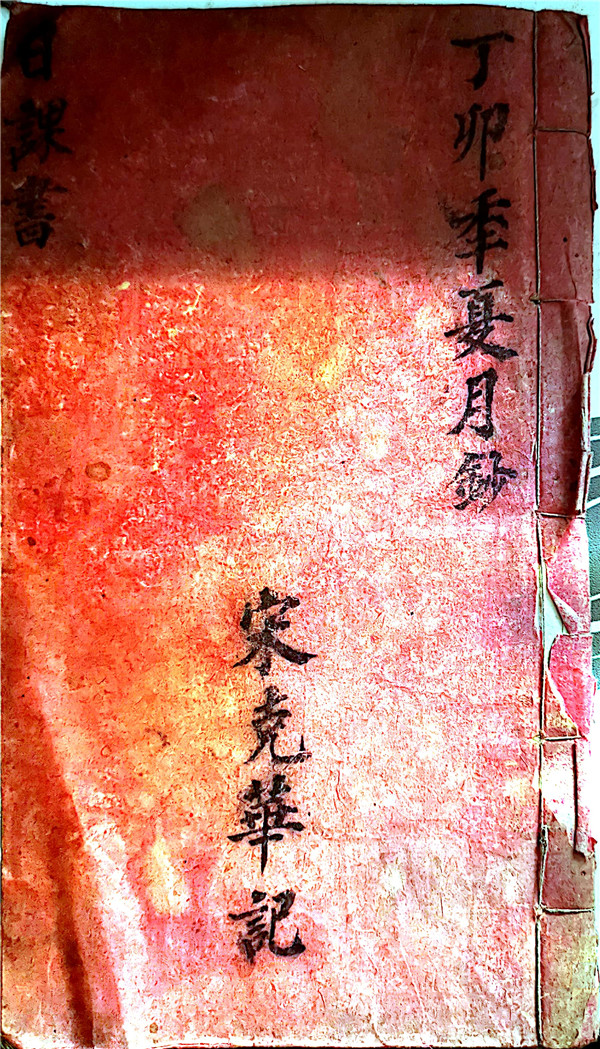 丁卯秊夏月鈔
宋克華記
日課書